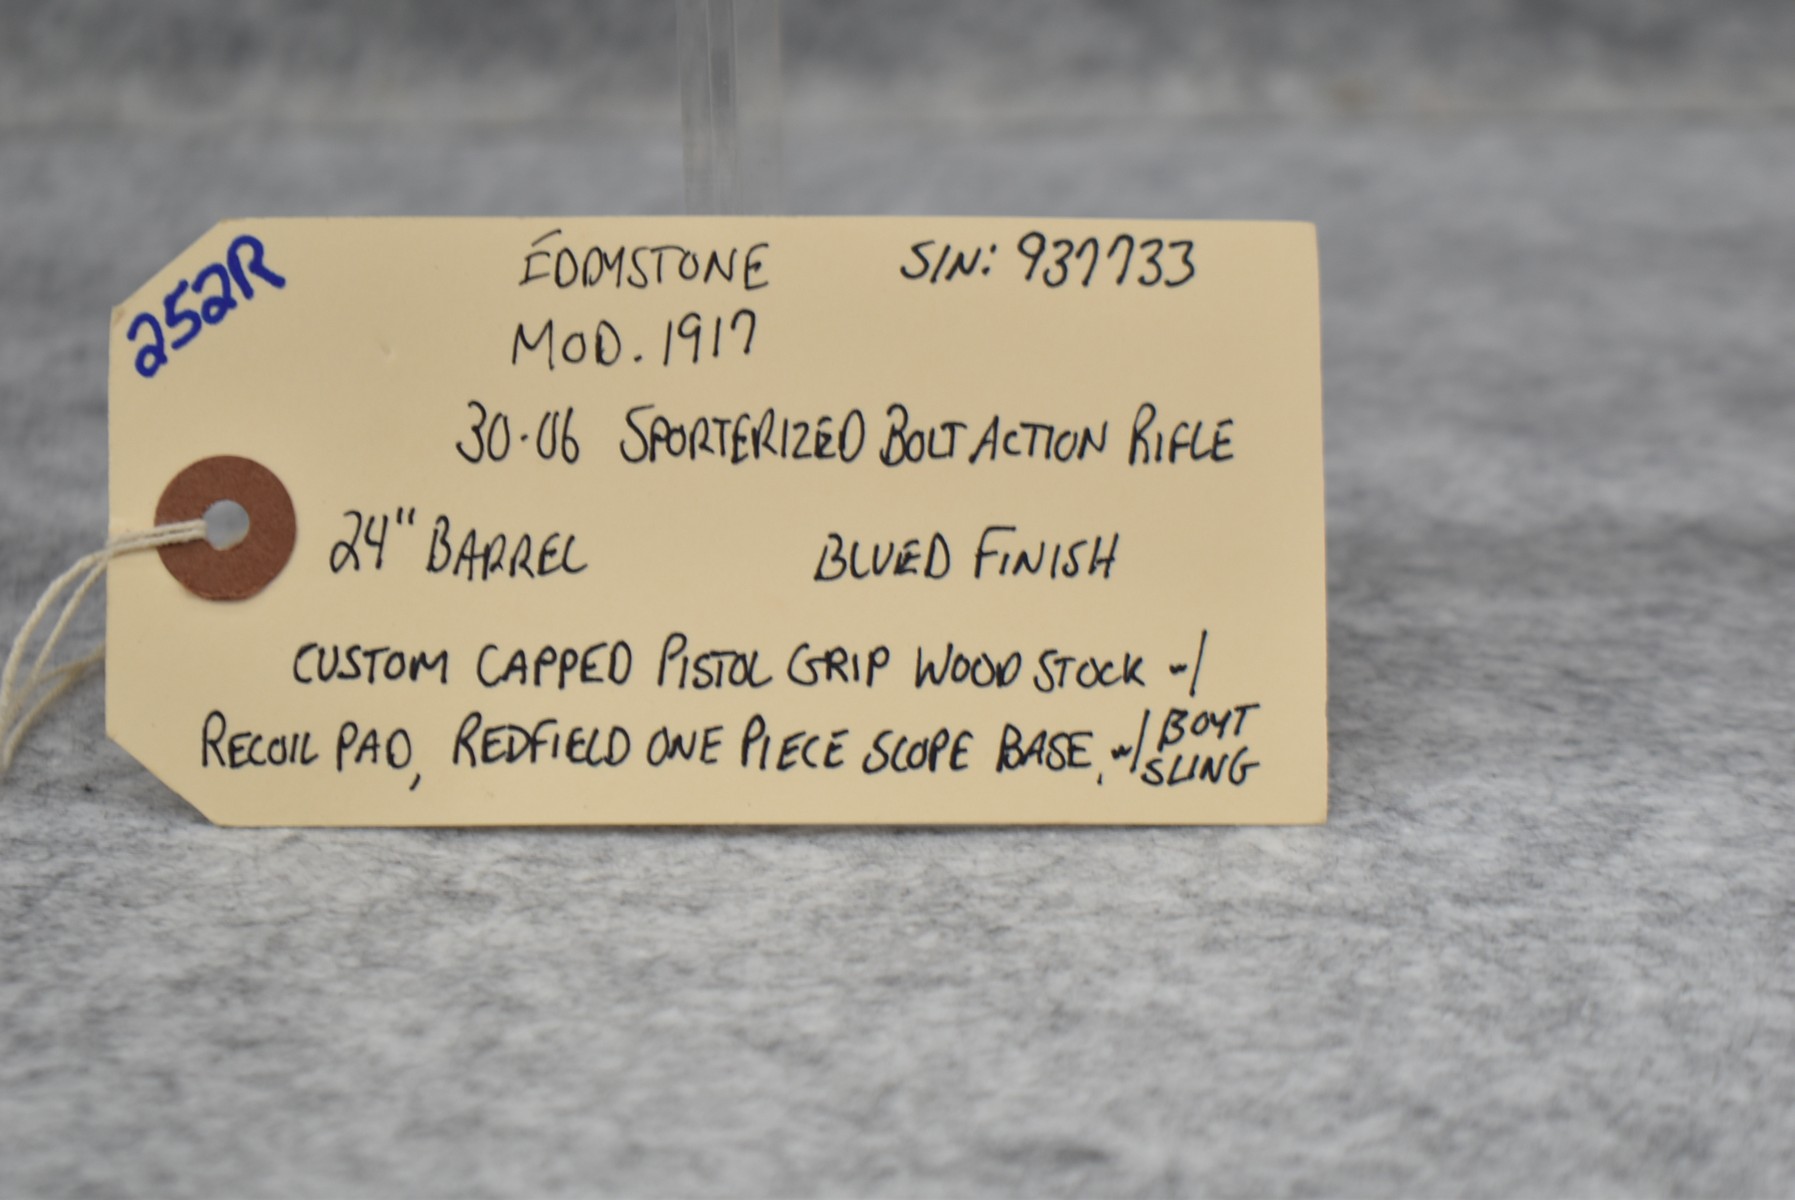 252R
EDDYSTONE S/N: 937733
MOD. 1917
30-06 SPORTERIZED BOLT ACTION RIFLE
24" BARREL BLUED FINISH
CUSTOM CAPPED PISTOL GRIP WOOD STOCK w/
RECOIL PAD, REDFIELD ONE PIECE SCOPE BASE, w/ BOYT
SLING